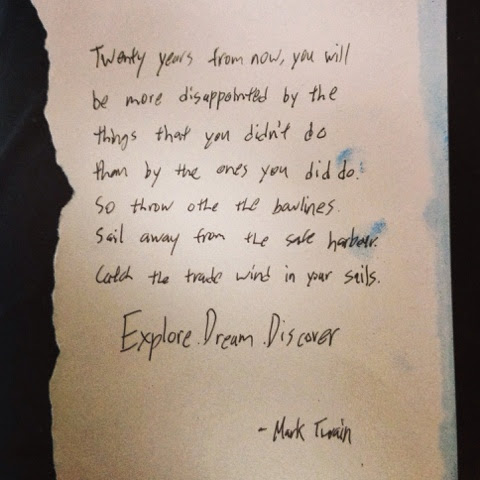 Twenty years from now, you will
be more disappointed by the
things that you didn't do
than by the ones you did do.
So throw othe the bowlines.
Sail away from the safe harbour.
Catch the trade wind in your sails.
Explore. Dream. Discover
- Mark Twain